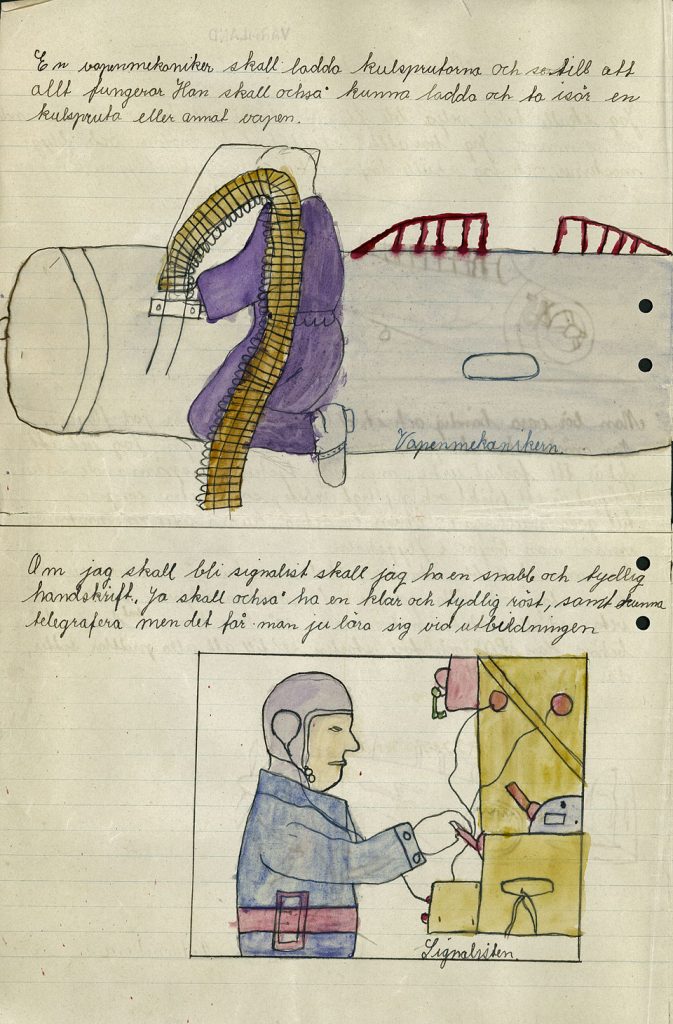 En vapenmekaniker skall ladda kulsprutorna och se till att
allt fungerar Han skall också kunna ladda och ta isär en
kulspruta eller annat vapen.
Vapenmekanikern.
Om jag skall bli signalist skall jag ha en snabb och tydlig
handskrift. Ja skall också ha en klar och tydlig röst, samt kunna
telegrafera men det får man ju lära sig vid utbildningen
Signalisten.